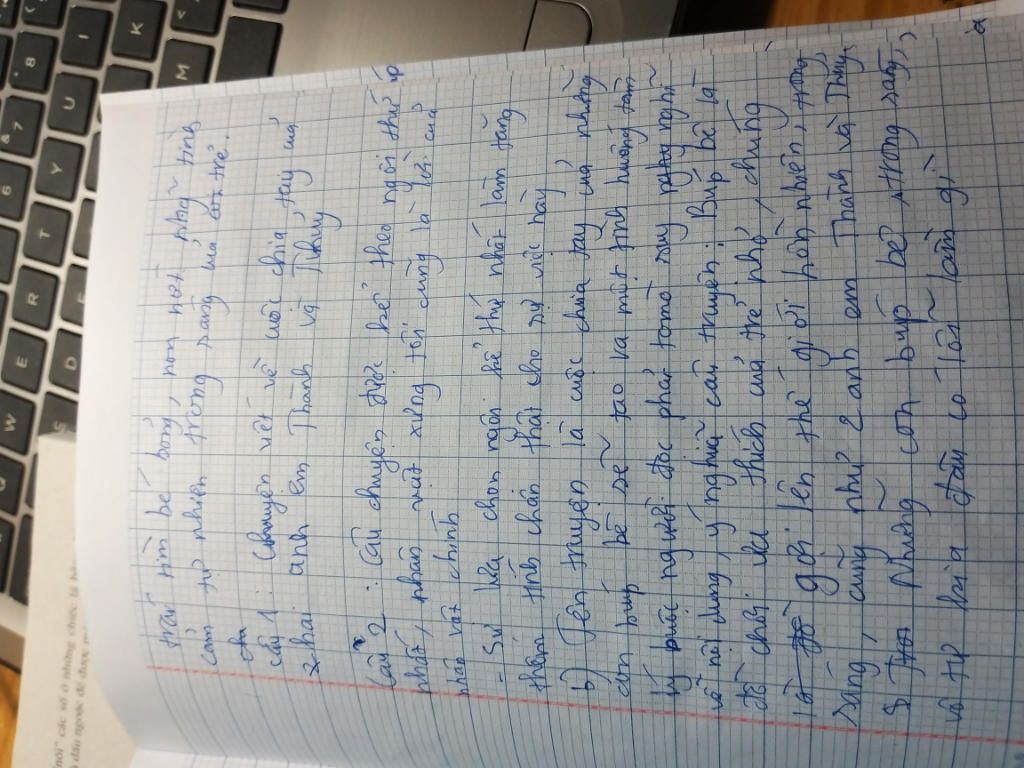 trái tim bé bỏng, non nớt, những tình
cảm tự nhiên trong sáng của con trẻ.
Câu 1: Chuyện viết về cuộc chia tay của
hai anh em Thành và Thủy
Câu 2: Câu chuyện được kể theo ngôi thứ
nhất, nhân vật xưng tôi cũng là là
nhân vật chính
- Sự lựa chọn ngôi kể thứ nhất làm tăng
thêm tính chân thật cho sự việc này
b) Tên truyện là cuộc chia tay của những
con búp bê sẽ tạo ra một tình huống tâm
lý buộc người đọc phải tò mò suy nghĩ
về nội dung, ý nghĩa câu truyện. Búp bê là
đồ chơi của thiếu của trẻ nhỏ, chúng
gợi lên thế giới hồn nhiên, trong
sáng, cũng như 2 anh em Thành và Thủy,
Những con búp bê trong sáng,
vô tư kia đâu có lỗi lầm gì
K
I
M
U
Y
T
R
E
W
8
7
6